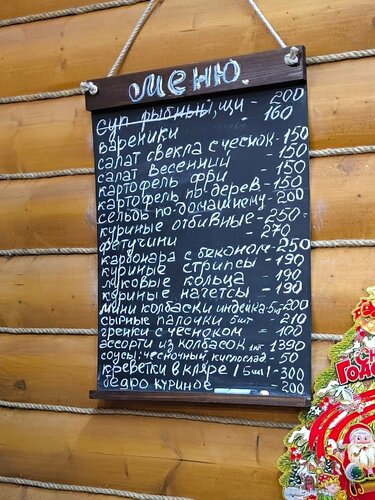 меню
суп рыбный, щи - 200
160
вареники
салат свекла с чеснок - 150
салат весенний - 150
картофель фри - 150
картофель по-дерев - 150
сельдь по-домашнему - 200
куриные отбивные - 250
фетучини - 270
карбонара с беконом - 250
куриные стрипсы - 190
луковые кольца - 190
куриные нагетсы - 190
мини колбаски индейка 5шт - 200
сырные палочки 5шт - 210
гренки с чесноком - 100
ассорти из колбасок 1кг - 1390
соусы: чесночный кислослад - 50
креветки в кляре (5шт) - 300
ведро куриное - 200